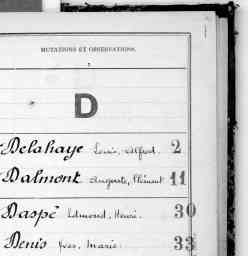 MUTATIONS ET OBSERVATIONS.
D
Delahaye Louis, Alfred. 2
Dalmont Auguste, Clément 11
Daspé Edmond, Henri. 30
Denis Yves, Marie. 33